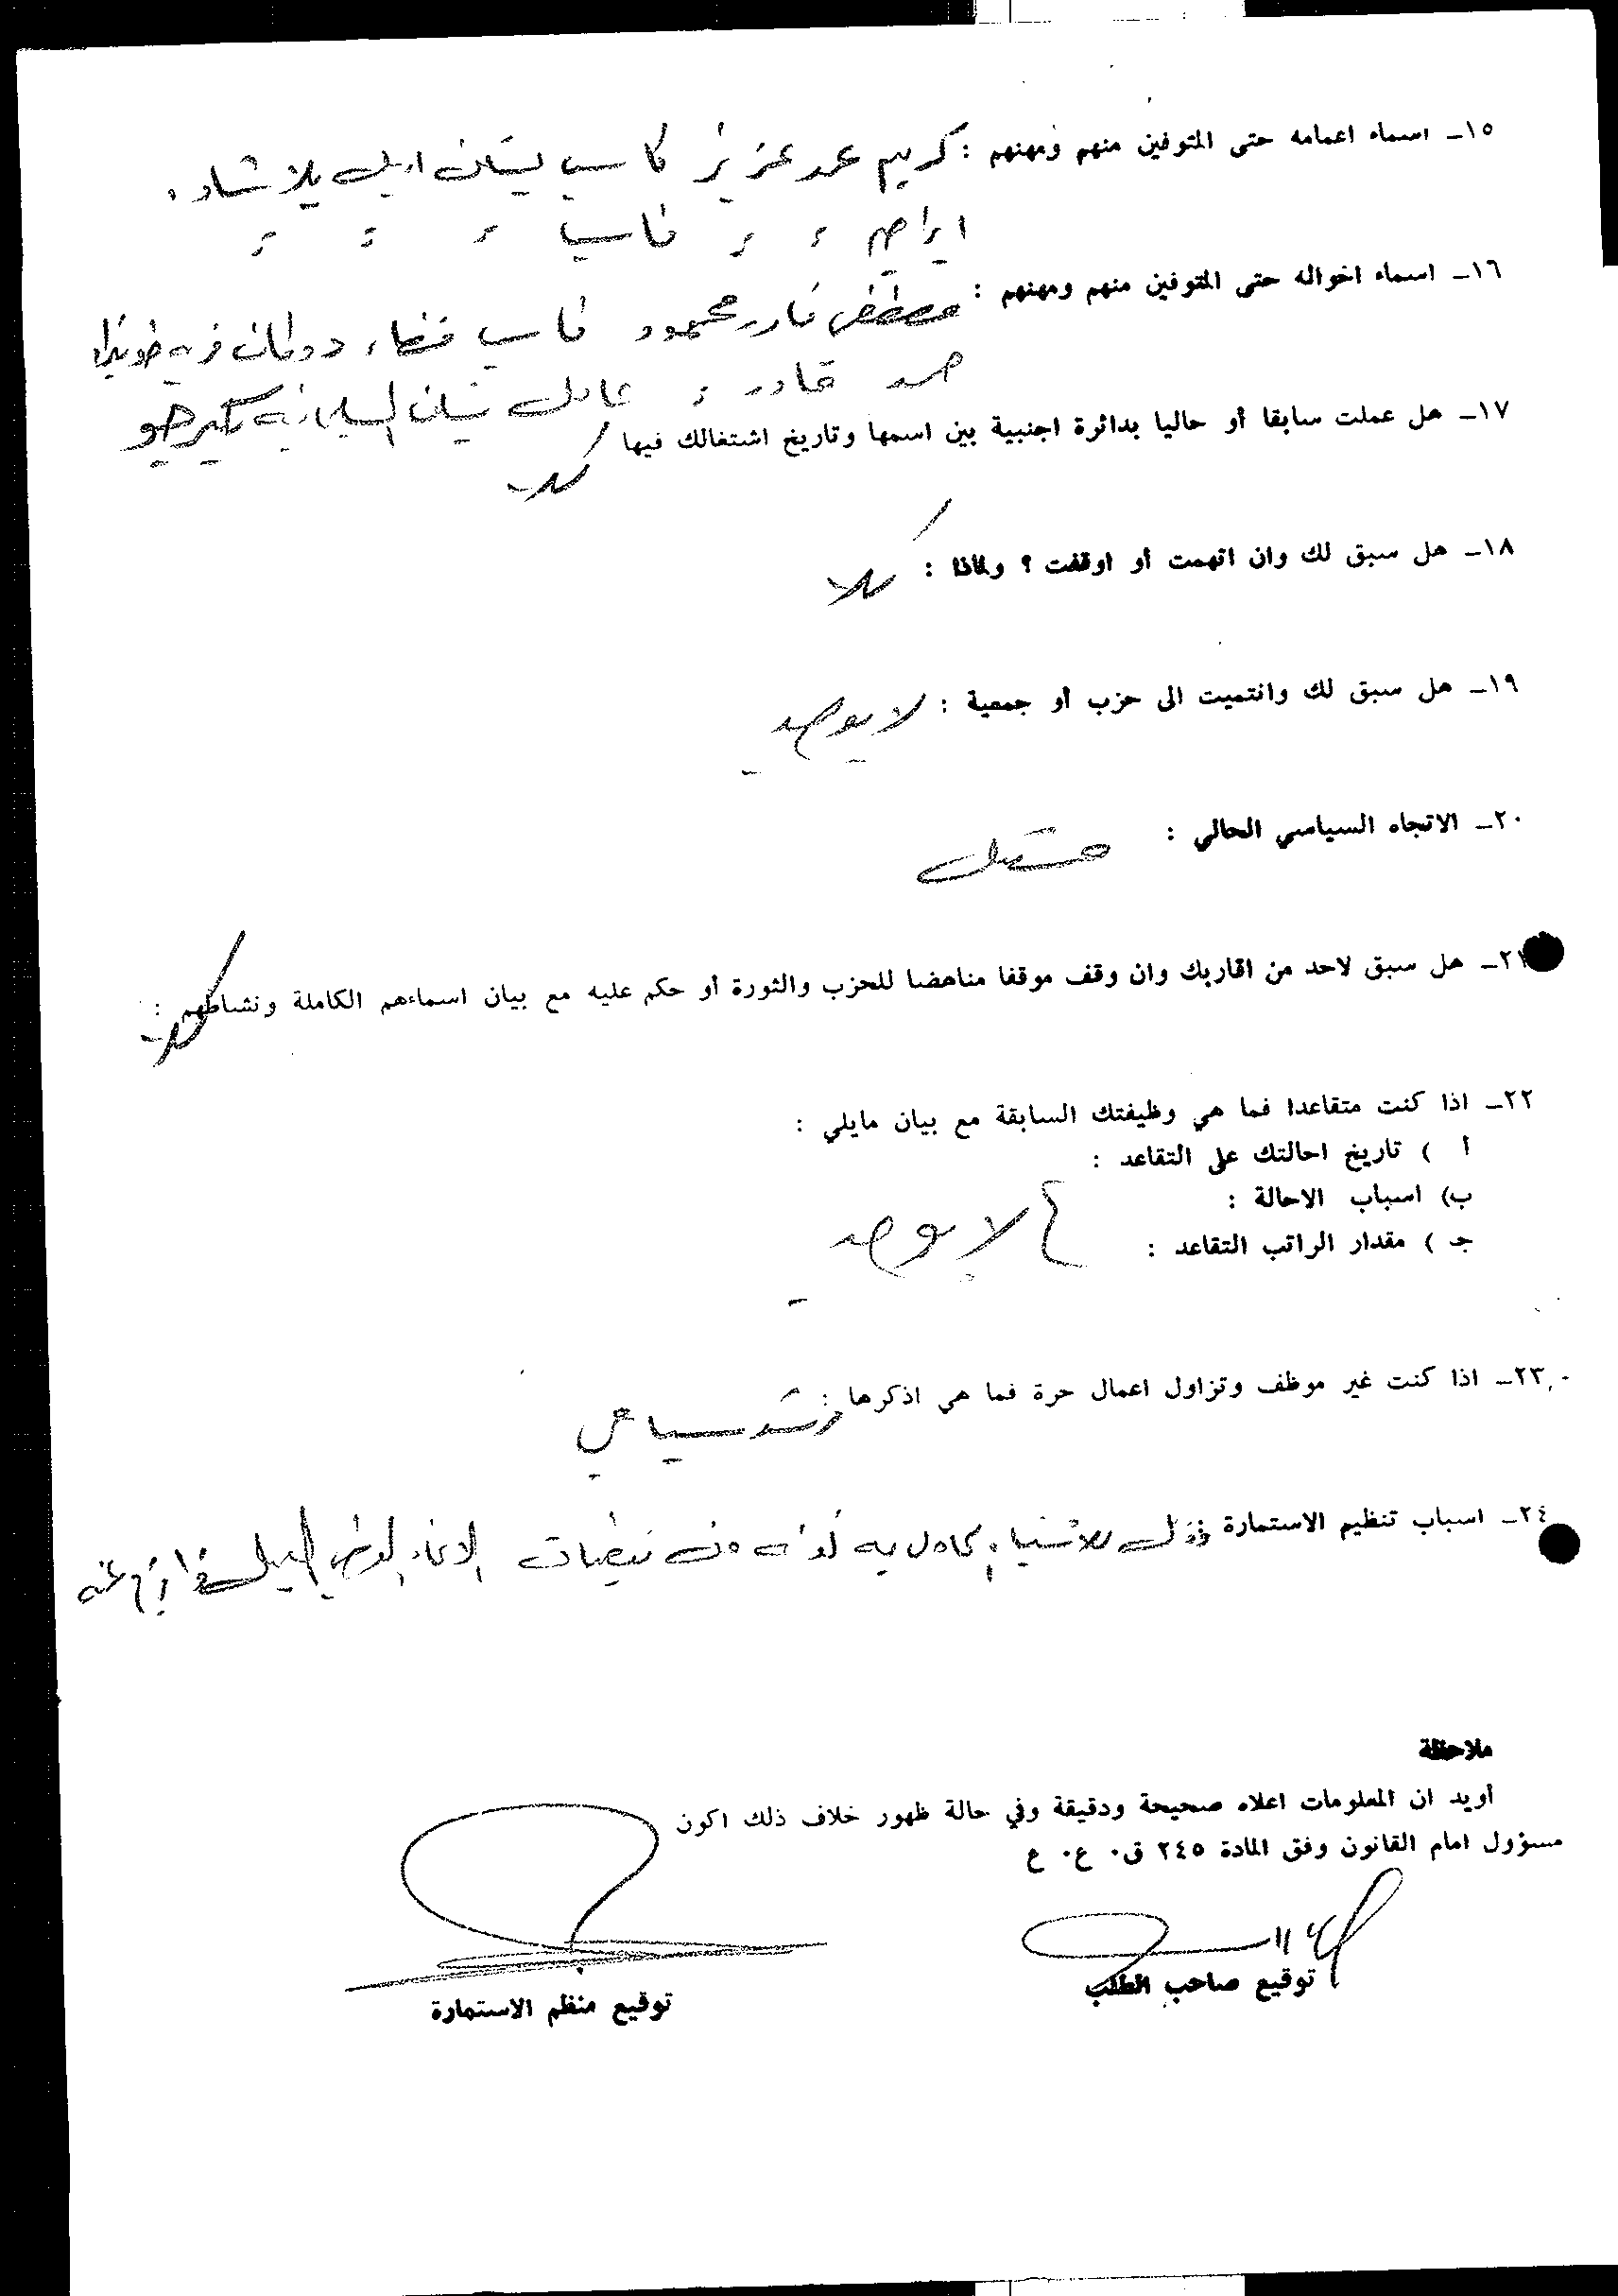 ١٥ـ اسماء اعمامه حتى المتوفين منهم ومهنهم : كريم عزيز كاسب يسكن اربيل
ابراهيم 〃 〃 كاسب 〃 〃 〃
١٦ـ اسماء اخواله حتى المتوفين منهم ومهنهم : مصطفى قادر محمود كاسب قضاء دوكان قرية
حمد قادر 〃 عامل يسكن السليمانية
١٧ـ هل عملت سابقا أو حاليا بدائرة اجنبية بين اسمها وتاريخ اشتغالك فيها كلا
١٨ـ هل سبق لك وان اتهمت أو اوقفت ؟ ولماذا : كلا
١٩ـ هل سبق لك وانتميت الى حزب أو جمعية : لا يوجد
٢٠ـ الاتجاه السياسي الحالي : مستقل
٢١ـ هل سبق لاحد من اقاربك وان وقف موقفا مناهضا للحزب والثورة أو حكم عليه مع بيان اسماءهم الكاملة ونشاطهم : كلا
٢٢ـ اذا كنت متقاعدا فما هي وظيفتك السابقة مع بيان مايلي :
أ ) تاريخ احالتك على التقاعد :
ب) اسباب الاحالة :
جـ ) مقدار الراتب التقاعد :
لا يوجد
٢٣ـ اذا كنت غير موظف وتزاول اعمال حرة فما هي اذكرها : مرشد سياحي
٢٤ـ اسباب تنظيم الاستمارة
ملاحظة
أويد ان المعلومات اعلاه صحيحة ودقيقة وفي حالة ظهور خلاف ذلك اكون
مسؤول امام القانون وفق المادة ٢٤٥ ق٠ ع٠ ع
توقيع صاحب الطلب
توقيع منظم الاستمارة